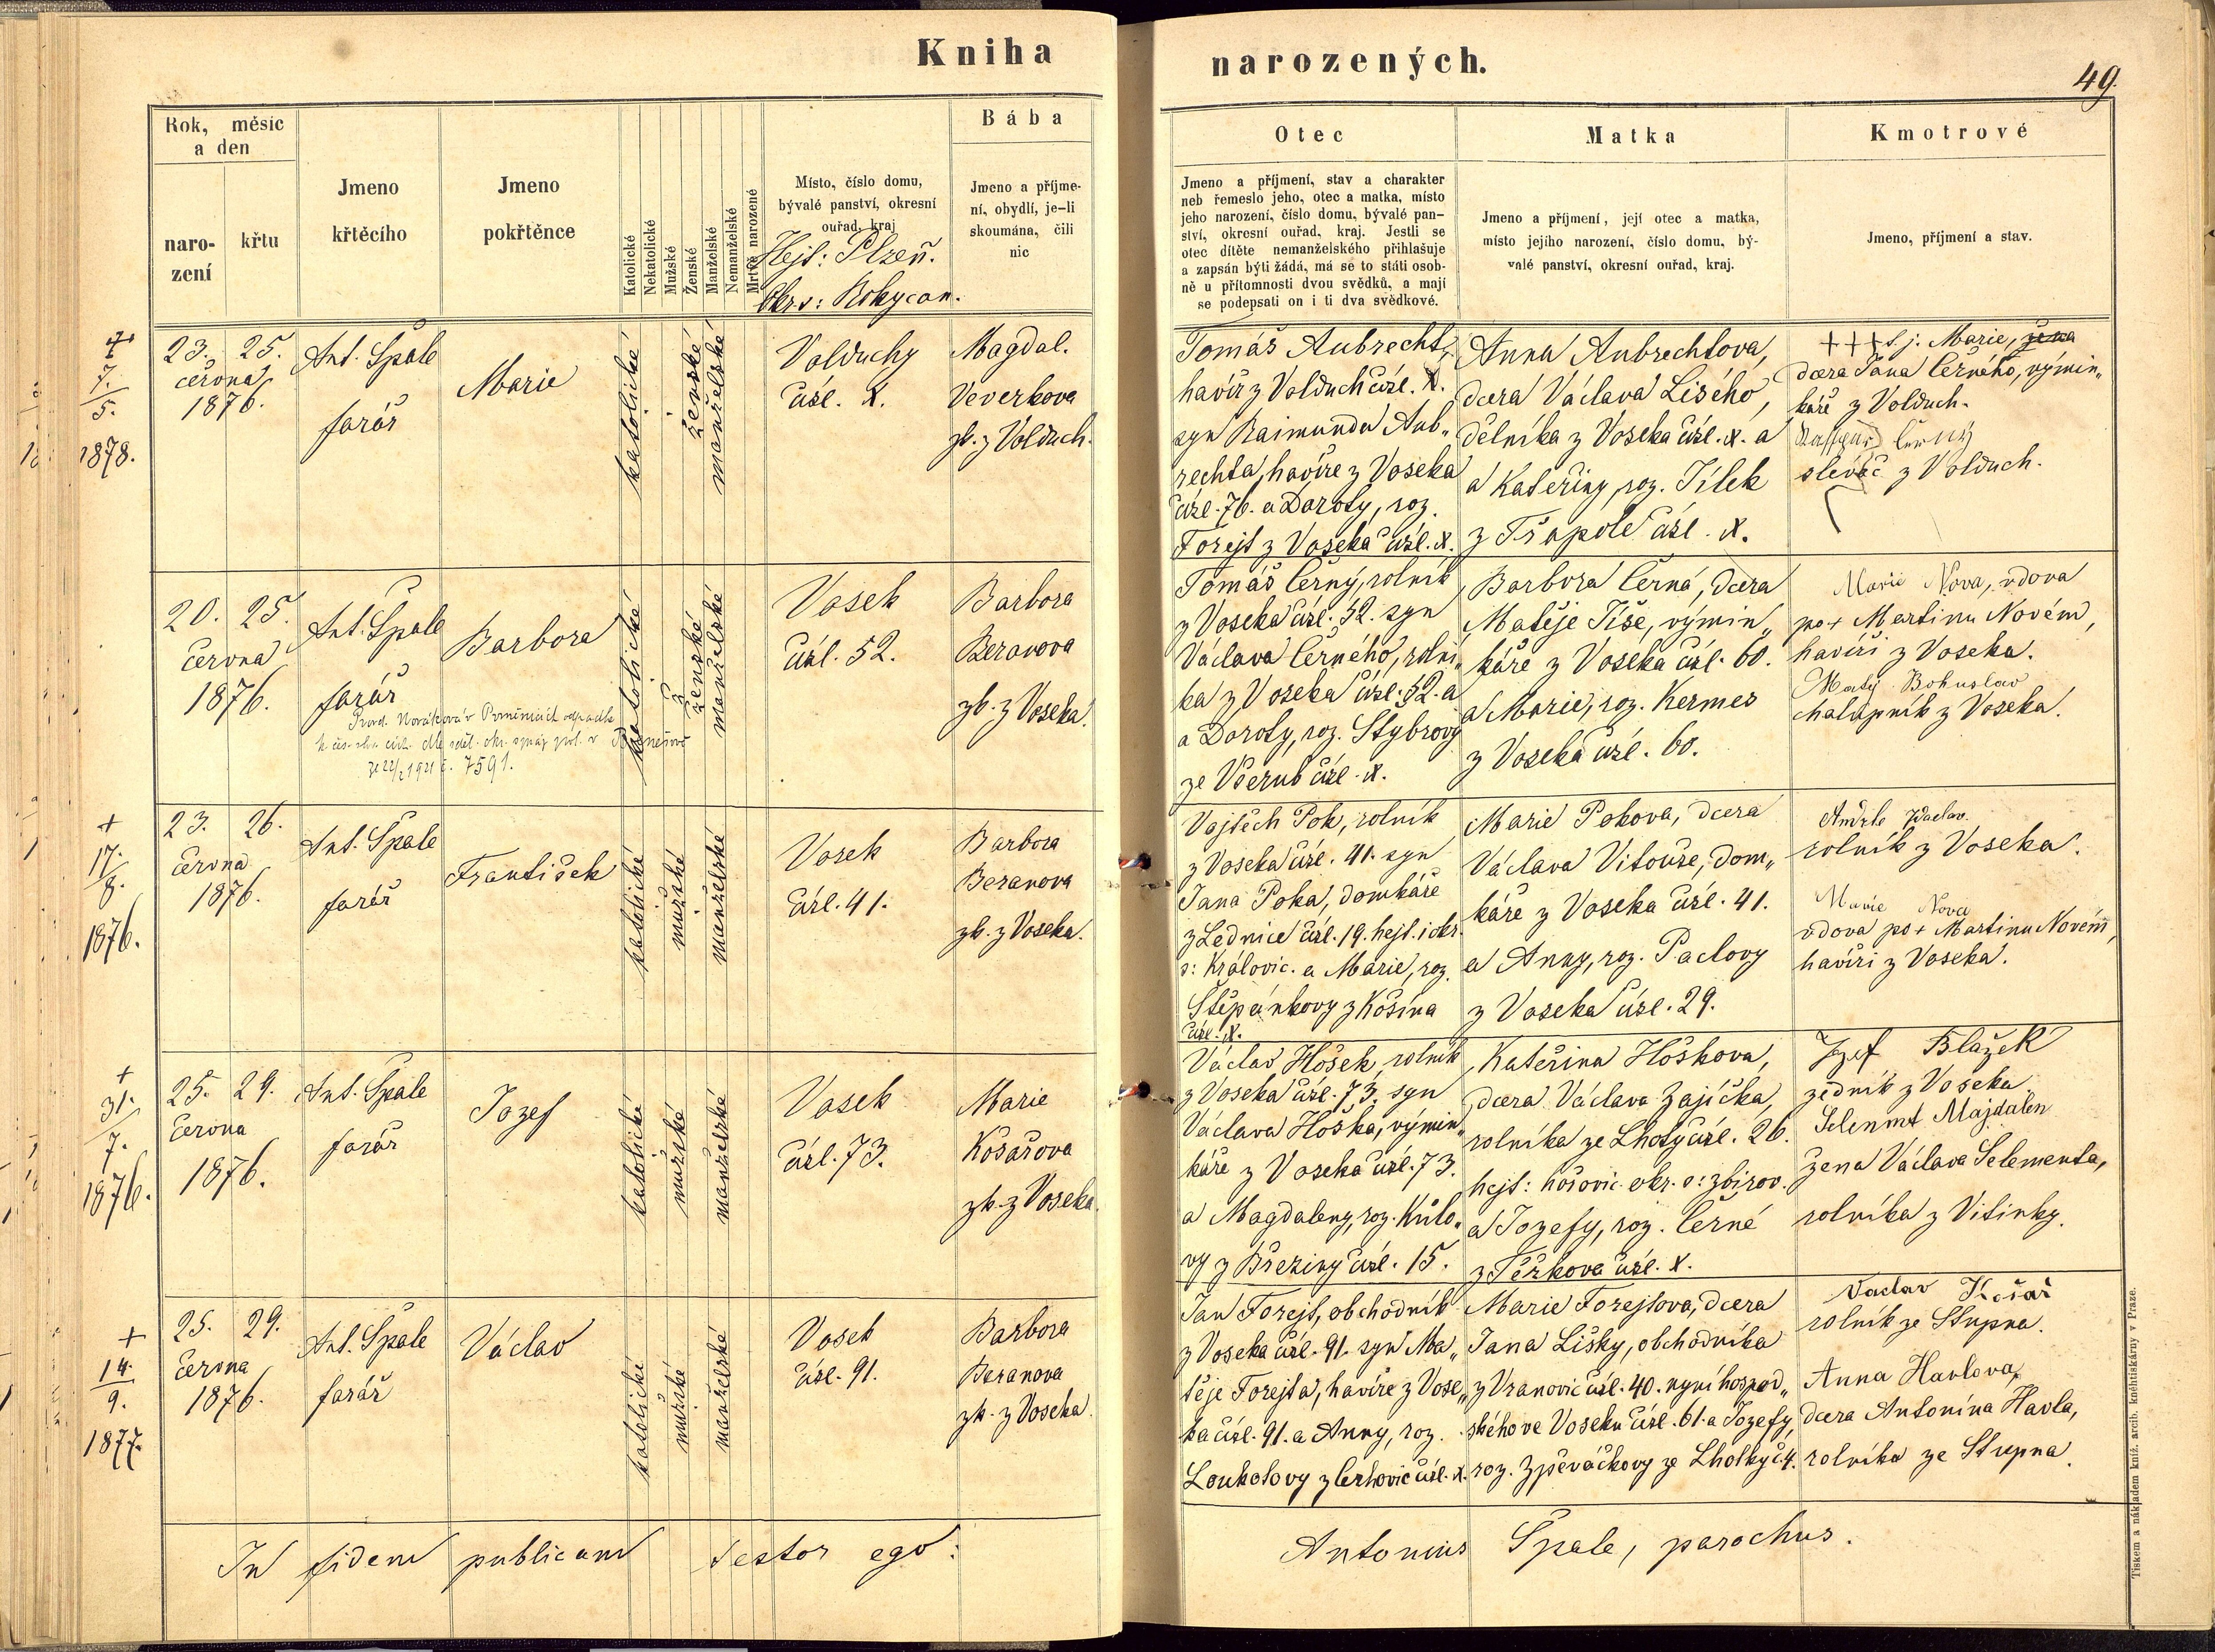 Kniha
narozených.
49.
Rok, měsíc
a den
naro-
zení
křtu
Jmeno
křtěcího
Jmeno
pokřtěnce
Katolické
Nekatolické
Mužské
Ženské
Manželské
Nemanželské
Mrtvě narozené
Místo, číslo domu,
bývalé panství, okresní
ouřad, kraj
Hejt: Plzeň.
Okr.s: Rokycan.
Bába
Jmeno a příjme-
ní, obydlí, je-li
skoumána, čili
nic
Otec
Jmeno a příjmení, stav a charakter
neb řemeslo jeho, otec a matka, místo
jeho narození, číslo domu, bývalé pan-
ství, okresní ouřad, kraj. Jestli se
otec dítěte nemanželského přihlašuje
a zapsán býti žádá, má se to státi osob-
ně u přítomnosti dvou svědků, a mají
se podepsati on i ti dva svědkové.
Matka
Jmeno a příjmení, její otec a matka,
místo jejího narození, číslo domu, bý-
valé panství, okresní ouřad, kraj.
Kmotrové
Jmeno, příjmení a stav.
+
7.
5.
1878.
23. 25.
června
1876.
Ant. Špale
farář
Marie
katolické
ženské
manželské
Volduchy
čísl. X.
Magdal.
Veverkova
zk. z Volduch.
Tomáš Aubrecht,
havíř z Volduch čísl. X.
syn Raimunda Aub„
rechta, havíře z Voseka
čísl. 76. a Doroty, roz.
Forejt z Voseka čísl. X.
Anna Aubrechtova,
dcera Václava Lisého,
dělníka z Voseka čísl. X. a
a Kateřiny, roz. Jílek
z Třapole čísl. X.
+++ s. j: Marie, žena
dcera Jana Černého, výmin„
káře z Volduch.
slévač z Volduch.
20. 25.
června
1876.
Ant. Špale
farář
Barbora
katolické
ženské
manželské
Vosek
čísl. 52.
Barbora
Beranova
zk. z Voseka.
ze 22/2 1921 č. 7591.
Tomáš Černý, rolník
z Voseka čísl. 52. syn
Václava Černého, rolní„
ka z Voseka čísl. 52. a
a Doroty, roz. Stybrovy
ze Všerub čísl. X.
Barbora Černá, dcera
Matěje Tíše, výmin„
káře z Voseka čísl. 60.
a Marie, roz. Kermes
z Voseka čísl. 60.
Marie Nova, vdova
po + Martinu Novém,
havíři z Voseka.
Matý Bohuslav
chalupník z Voseka.
+
17.
8.
1876.
23. 26.
června
1876.
Ant. Špale
farář
František
katolické
mužské
manželské
Vosek
čísl. 41.
Barbora
Beranova
zk. z Voseka.
Vojtěch Pok, rolník
z Voseka čísl. 41. syn
Jana Poka, domkáře
z Lednice čísl. 19. hejt. i okr.
s: Královic. a Marie, roz.
Štěpánkovy z Košína
čísl. X.
Marie Pokova, dcera
Václava Vitouše, dom„
káře z Voseka čísl. 41.
a Anny, roz. Paclovy
z Voseka čísl. 29.
Andrle Václav.
rolník z Voseka.
Marie Nova
vdova po + Martinu Novém,
havíři z Voseka.
+
31.
7.
1876.
25. 29.
června
1876.
Ant. Špale
farář
Jozef
katolické
mužské
manželské
Vosek
čísl. 73.
Marie
Košařova
zk. z Voseka.
Václav Hošek, rolník
z Voseka čísl. 73. syn
Václava Hoška, výmin„
káře z Voseka čísl. 73.
a Magdaleny, roz. Kůlo„
vy z Březiny čísl. 15.
Kateřina Hoškova,
dcera Václava Zajíčka,
rolníka ze Lhoty čísl. 26.
hejt: hořovic. okr. s: zbirov.
a Jozefy, roz. Černé
z Těškova čísl. X.
Jozef Blažek
zedník z Voseka.
Selemnt Majdalen
žena Václava Selementa,
rolníka z Vitinky.
+
14.
9.
1877.
25. 29.
června
1876.
Ant. Špale
farář
Václav
katolické
mužské
manželské
Vosek
čísl. 91.
Barbora
Beranova
zk. z Voseka.
Jan Forejt, obchodník
z Voseka čísl. 91. syn Ma„
těje Forejta, havíře z Vose„
ka čísl. 91. a Anny, roz.
Loukotovy z Cerhovic čísl. X.
Marie Forejtova, dcera
Jana Lišky, obchodníka
z Vranovic čísl. 40. nyní hospod„
ského ve Voseku čísl. 61. a Jozefy,
roz. Zpěváčkovy ze Lhotky č. 4.
Vaclav Košař
rolník ze Stupna.
Anna Havlova,
dcera Antonína Havla,
rolníka ze Stupna.
In fidem publicam testor ego:
Antonius Špale, parochus.
Tiskem a nákladem kníž. arcib. knihtiskárny v Praze.